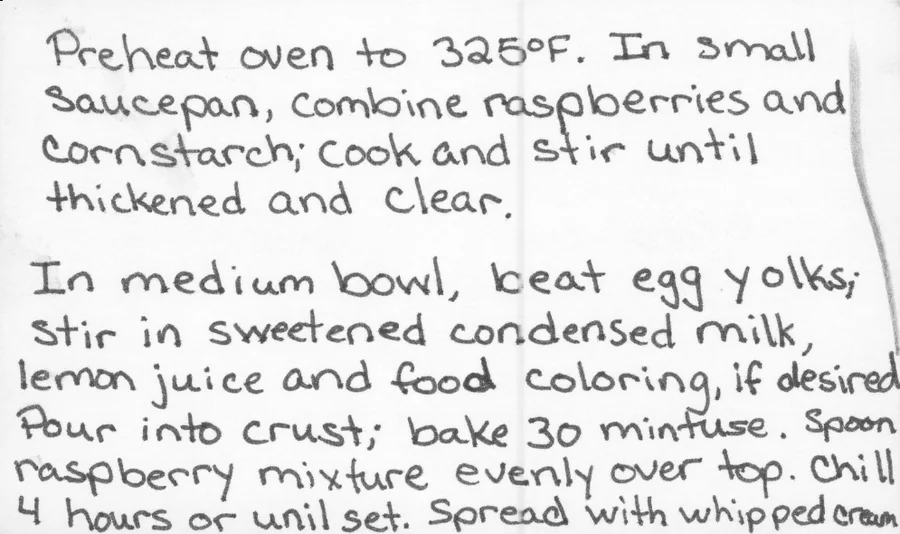 Preheat oven to 325°F. In small
saucepan, combine raspberries and
cornstarch; cook and stir until
thickened and clear.
In medium bowl, beat egg yolks;
stir in sweetened condensed milk,
lemon juice and food coloring, if desired
Pour into crust; bake 30 mintuse. Spoon
raspberry mixture evenly over top. Chill
4 hours or unil set. Spread with whipped cream